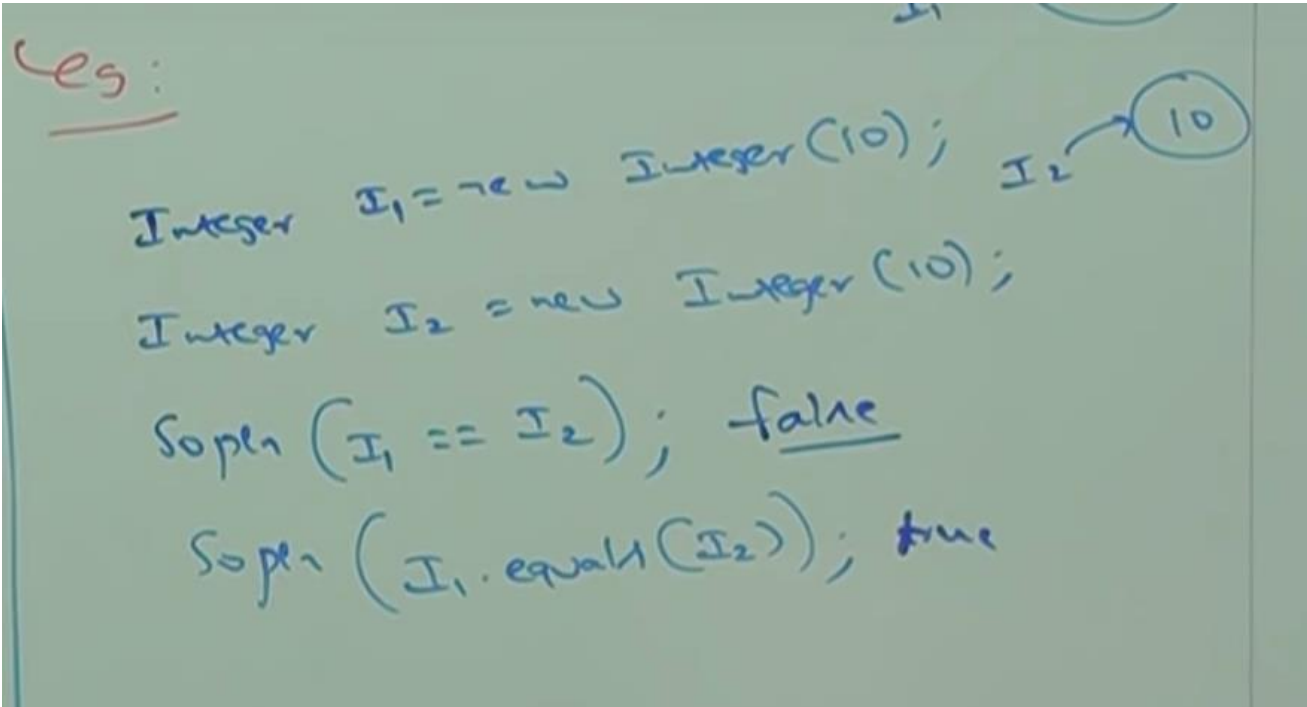 I1
eg:
Integer I1 = new Integer (10);
I2 10
Integer I2 = new Integer (10);
Sopln (I1 == I2); false
Sopln (I1.equals(I2)); true